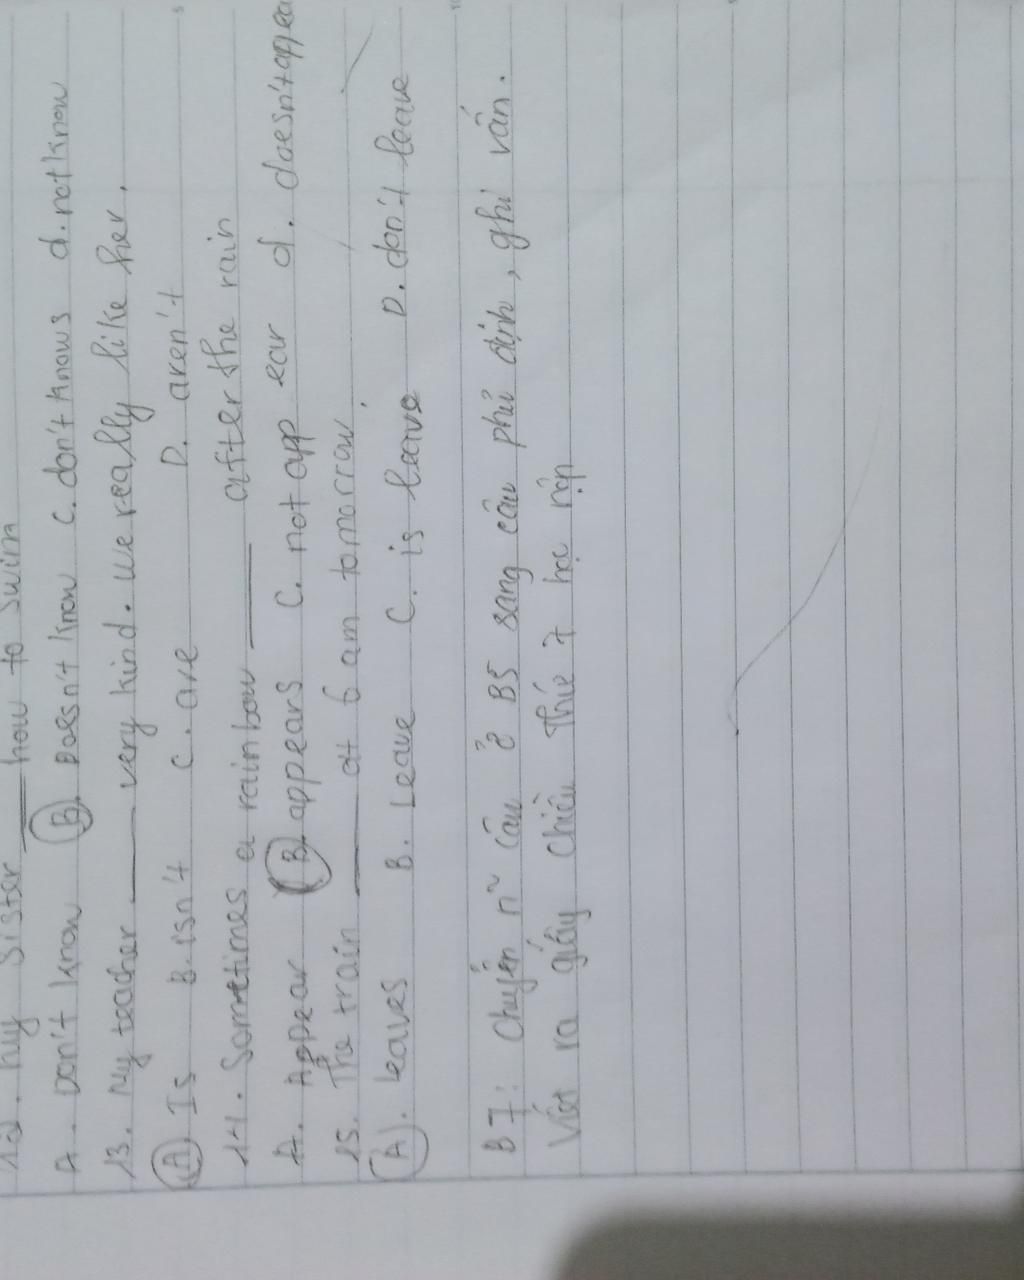 12. My sister ___ how to swim
A. Don't know B. Doesn't know C. don't knows d. not know
13. My teacher ___ very kind. We really like her.
A. Is B. isn't C. are D. aren't
14. Sometimes a rainbow ___ after the rain
A. Appear B. appears C. not app ear d. doesn't appea
15. The train ___ at 6 am tomorrow
A. leaves B. Leave C. is leave D. don't leave
B7: chuyển n~ câu ở B5 sang câu phủ định, ghi vấn.
Viết ra giấy chiều Thứ 7 học nộp